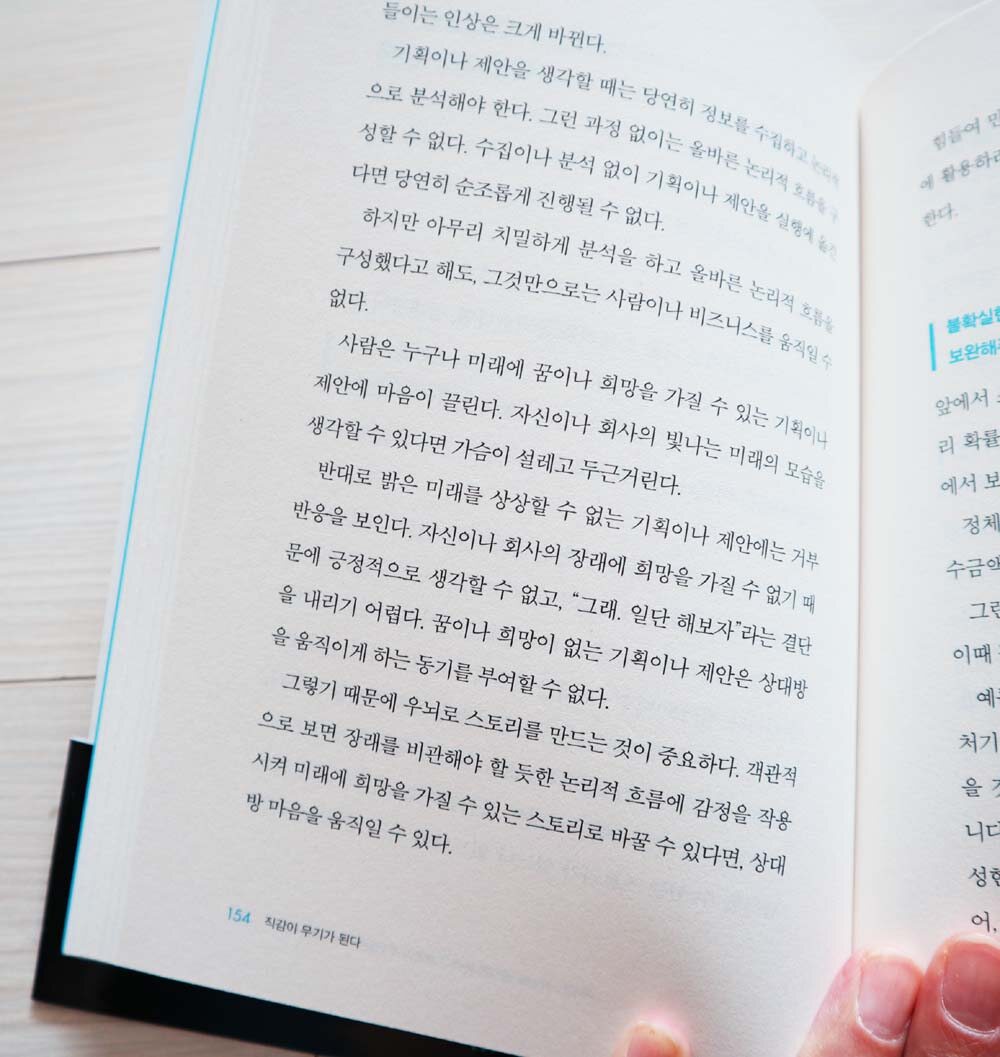 들이는 인상은 크게 바뀐다.
기획이나 제안을 생각할 때는 당연히 정보를 수집하고 논리적
으로 분석해야 한다. 그런 과정 없이는 올바른 논리적 흐름을 구
성할 수 없다. 수집이나 분석 없이 기획이나 제안을 실행에 옮긴
다면 당연히 순조롭게 진행될 수 없다.
하지만 아무리 치밀하게 분석을 하고 올바른 논리적 흐름을
구성했다고 해도, 그것만으로는 사람이나 비즈니스를 움직일 수
없다.
사람은 누구나 미래에 꿈이나 희망을 가질 수 있는 기획이나
제안에 마음이 끌린다. 자신이나 회사의 빛나는 미래의 모습을
생각할 수 있다면 가슴이 설레고 두근거린다.
반대로 밝은 미래를 상상할 수 없는 기획이나 제안에는 거부
반응을 보인다. 자신이나 회사의 장래에 희망을 가질 수 없기 때
문에 긍정적으로 생각할 수 없고, “그래. 일단 해보자”라는 결단
을 내리기 어렵다. 꿈이나 희망이 없는 기획이나 제안은 상대방
을 움직이게 하는 동기를 부여할 수 없다.
그렇기 때문에 우뇌로 스토리를 만드는 것이 중요하다. 객관적
으로 보면 장래를 비관해야 할 듯한 논리적 흐름에 감정을 작용
시켜 미래에 희망을 가질 수 있는 스토리로 바꿀 수 있다면, 상대
방 마음을 움직일 수 있다.
154 직감이 무기가 된다
힘들여
에 활용하
한다.
불확실
보완해
앞에서
리 확률
에서 보
정체
수금액
그런
이때
예를
처기
을 것
니다
성한
어,